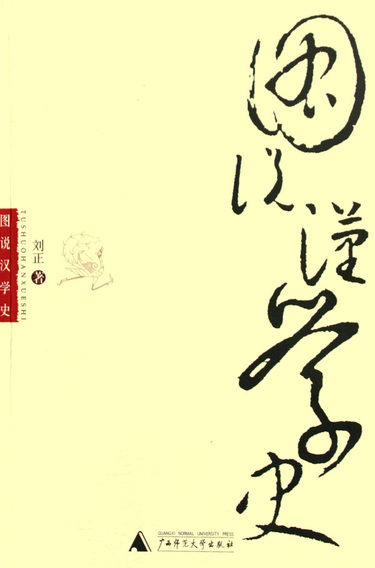 图说漢学史
图说汉学史
TUSHUOHANXUESHI
刘正 著
GUANGXI NORMAL UNIVERSITY PRESS
广西师范大学出版社